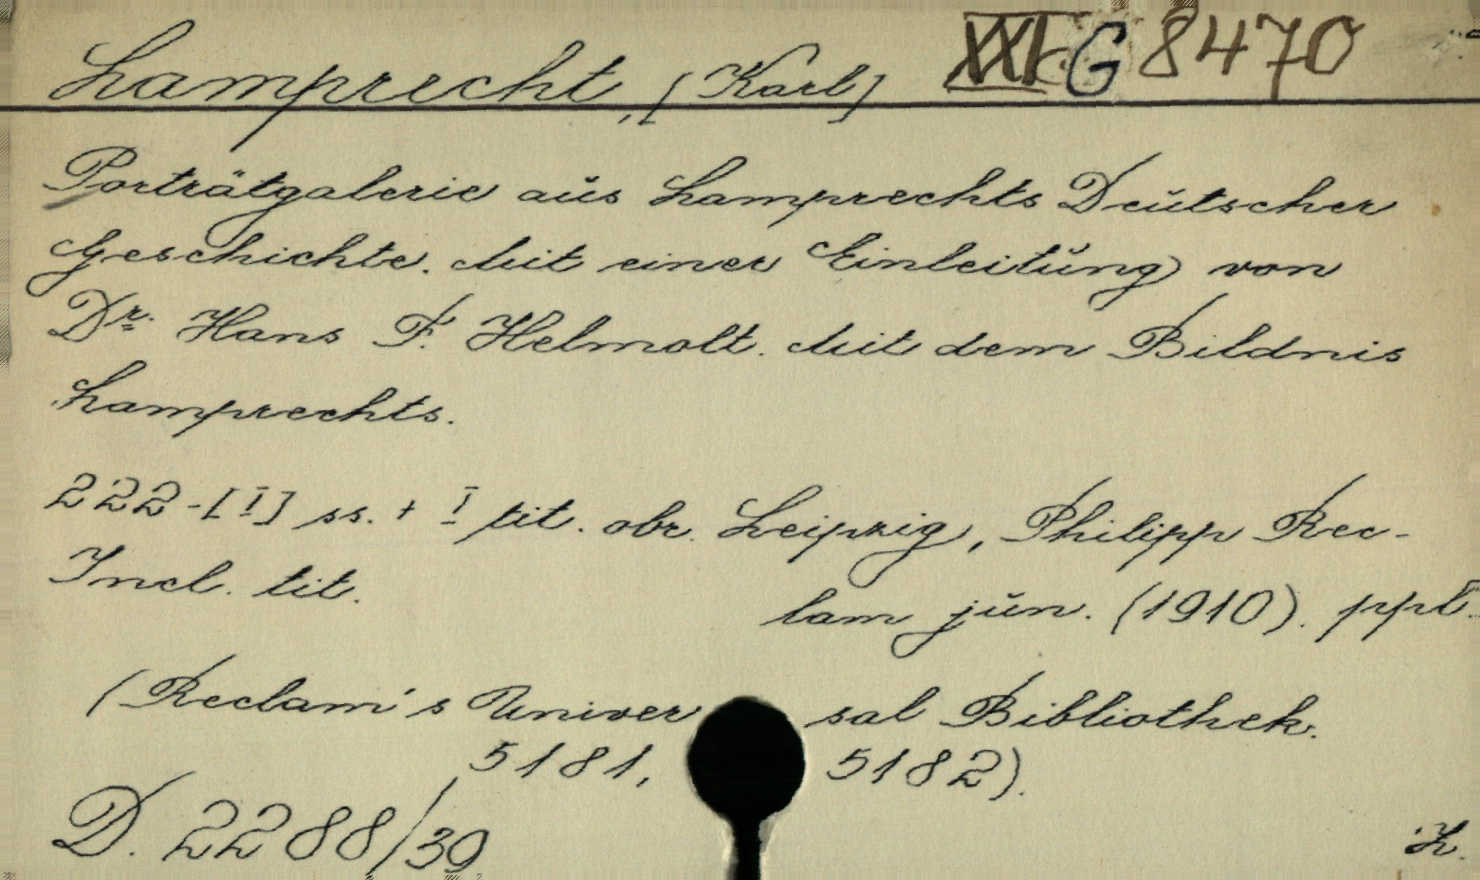 Lamprecht, [Karl] XXI. G 8470
Porträtgalerie aus Lamprechts Deutscher
Geschichte. Mit einer Einleitung von
Dr. Hans F. Helmolt. Mit dem Bildnis
Lamprechts.
222-[I] ss. + I tit. obr. Leipzig, Philipp Rec-
Incl. tit. lam jun. (1910). ppl.
(Reclam's Universal Bibliothek.
5181, 5182).
D. 2288/39 K.